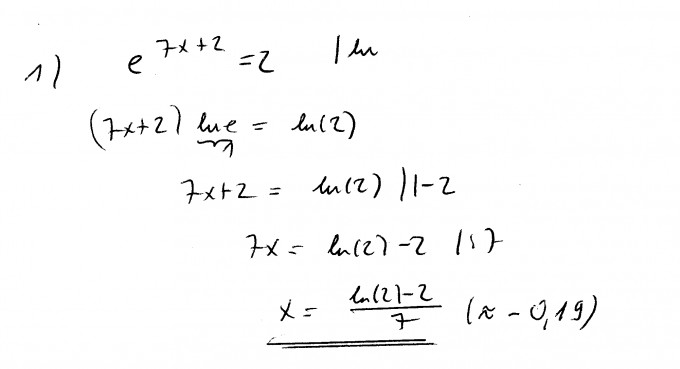 1) e^(7x+2) = 2 | ln
(7x+2) ln e = ln(2)
1
7x+2 = ln(2) | |-2
7x = ln(2) -2 | : 7
x = (ln(2)-2)/7 (≈ -0,19)